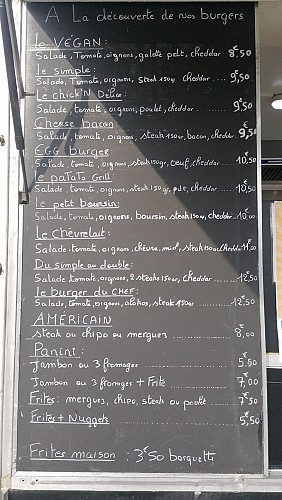 A La découverte de nos burgers
le VÉGAN :
Salade, Tomate, oignons, galette pdt, cheddar 8€50
le Simple :
Salade, Tomate, oignons, steak 150gr, cheddar .... 9€50
le chick'N Délice :
Salade, tomate, oignons, poulet, cheddar ...... 9€50
Cheese bacon
Salade, tomate, oignons, steak 150gr, bacon, cheddar.. 9€50
EGG burger
Salade, tomate, oignons, steak 150gr, oeuf, cheddar .... 10€50
le patato Grill :
Salade, tomate, oignons, steak 150gr, pdt, cheddar .... 10€50
le petit boursin :
Salade, tomate, oignons, boursin, steak 150gr, cheddar.. 10€00
le chèvrelait :
Salade, tomate, oignon, chèvre, miel, steak 150gr, cheddar.. 11€00
Du simple au double :
Salade tomate, oignons, 2 steaks 150gr, cheddar ....... 12€50
le burger du CHEF :
Salade, tomate, oignons, steak 150gr .......... 12€50
AMÉRICAIN
steak ou chipo ou merguez ............ 8€00
Panini :
Jambon ou 3 fromages ............ 5€50
Jambon ou 3 fromages + Frite ............ 7€00
Frites : merguez, chipo, steak ou poulet ........ 7€50
Frites + Nuggets ............ 5€50
Frites maison : 3€50 barquette